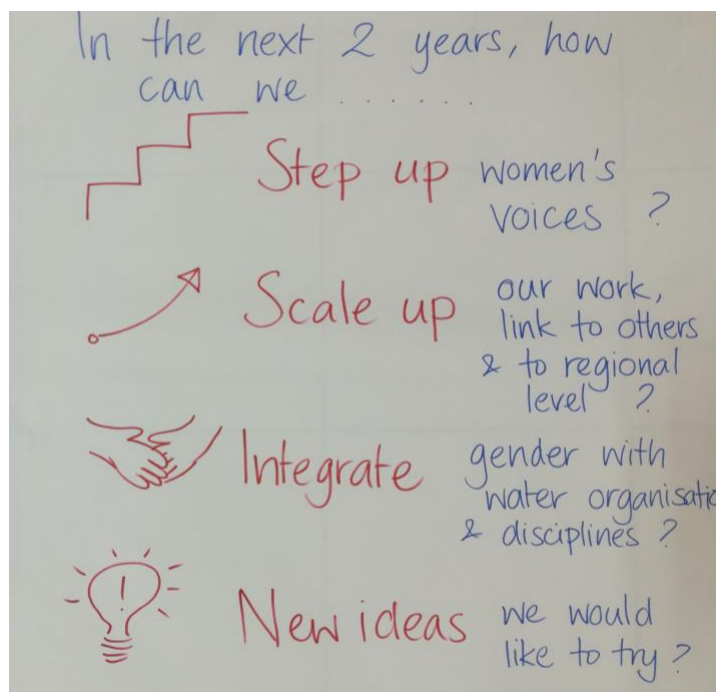 In the next 2 years, how
can we ......
Step up women's
voices ?
Scale up our work,
link to others
& to regional
level ?
Integrate gender with
water organisatio
& disciplines ?
New ideas we would
like to try ?